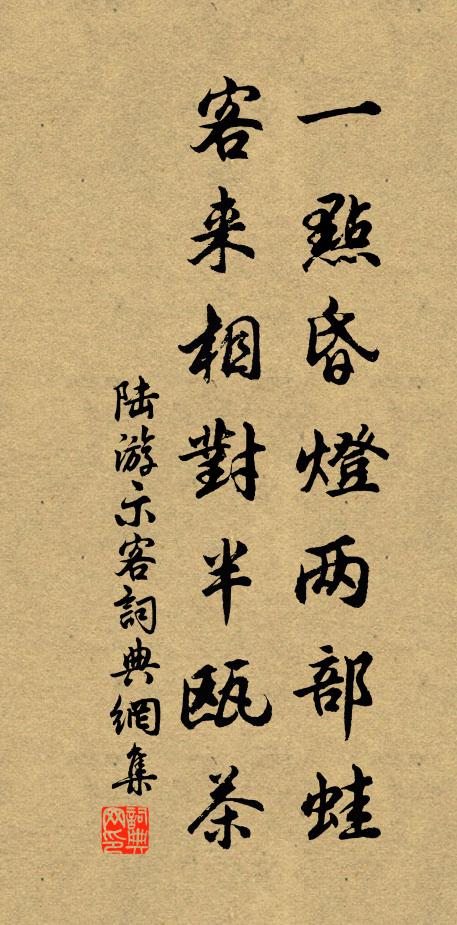 一點昏燈两部蛙
客来相對半甌茶
陆游示客詞典網集
詞典网印